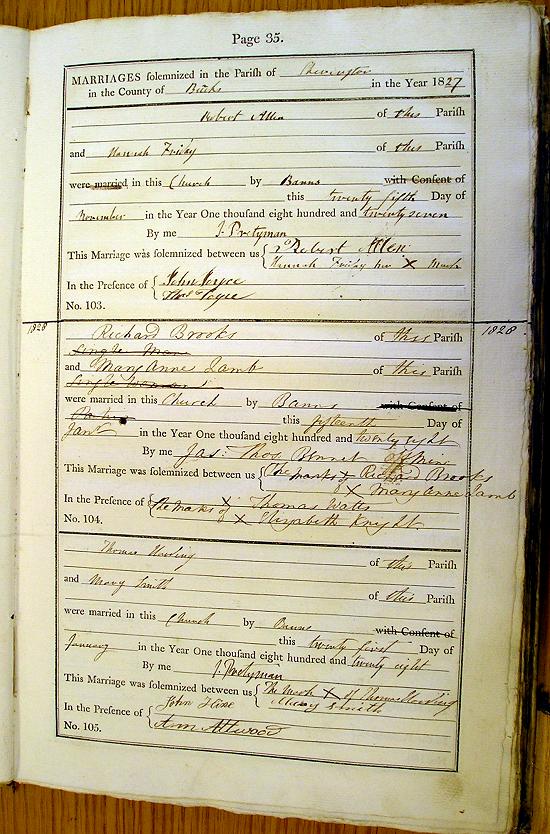 Page 35.
MARRIAGES solemnized in the Parish of
in the County of Bucks in the Year 1827
Robert Allen of this Parish
and Hannah Friday of this Parish
were married in this Church by Banns with Consent of
this twenty fifth Day of
November in the Year One thousand eight hundred and twenty seven
By me J. Pretyman
This Marriage was solemnized between us { Robert Allen
Hannah Friday her X Mark
In the Presence of { John Joyce
Thos Joyce
No. 103.
1828 1828
Richard Brooks of this Parish
Single Man
and Mary Anne Lamb of this Parish
Single Woman
were married in this Church by Banns with Consent of
this fifteenth Day of
Jany in the Year One thousand eight hundred and twenty eight
By me Jas: Thos Bennet Off Min
This Marriage was solemnized between us { The marks X Richard Brooks
of X Mary Anne Lamb
In the Presence of { the marks X Thomas Watts
of X Elizabeth Knight.
No. 104.
Thomas Harding of this Parish
and Mary Smith of this Parish
were married in this Church by Banns with Consent of
this twenty first Day of
January in the Year One thousand eight hundred and twenty eight
By me J. Pretyman
This Marriage was solemnized between us { The Mark X of Thomas Harding
Mary Smith
In the Presence of { John
Ann Attwood
No. 105.